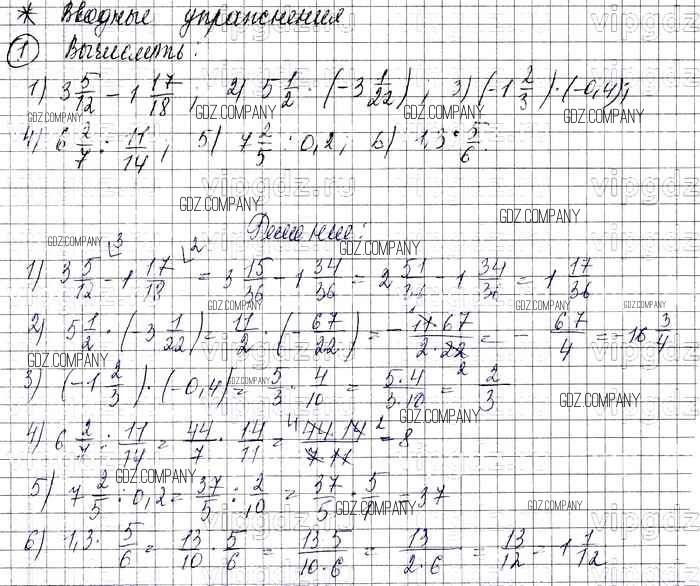 * Вводные упражнения
① Вычислить:
1) 3 5/12 − 1 17/18, 2) 5 1/2 · (−3 1/22); 3) (−1 2/3) · (−0,4);
4) 6 2/7 : 11/14; 5) 7 2/5 : 0,2; 6) 1,3 · 5/6.
Решение:
1) 3 5/12 − 1 17/18 = 3 15/36 − 1 34/36 = 2 51/36 − 1 34/36 = 1 17/36
2) 5 1/2 · (−3 1/22) = 11/2 · (−67/22) = − 11·67/2·22 = − 67/4 = −16 3/4
3) (−1 2/3) · (−0,4) = 5/3 · 4/10 = 5·4/3·10 = 2/3
4) 6 2/7 : 11/14 = 44/7 · 14/11 = 44·14/7·11 = 8
5) 7 2/5 : 0,2 = 37/5 : 2/10 = 37/5 · 5/1 = 37
6) 1,3 · 5/6 = 13/10 · 5/6 = 13·5/10·6 = 13/2·6 = 13/12 = 1 1/12
GDZ.COMPANY
vipgdz.ru